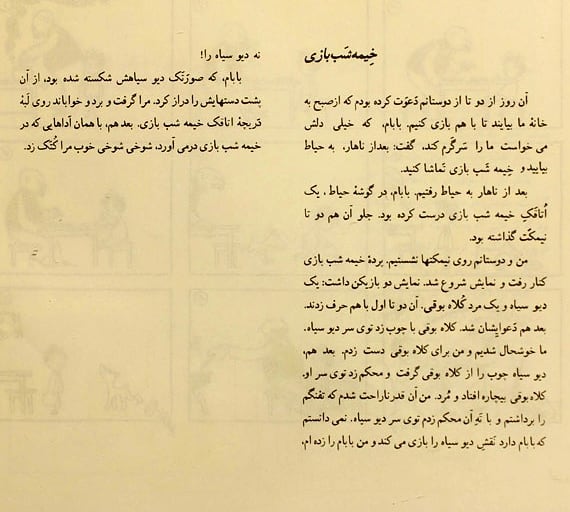 خِیمه شَب بازی
آن روز از دو تا از دوستانم دَعوَت کرده بودم که ازصبح به
خانهٔ ما بیایند تا با هم بازی کنیم. بابام، که خیلی دلش
می خواست ما را سَرگَرم کند، گفت: بعداز ناهار، به حیاط
بیایید و خِیمه شَب بازی تَماشا کنید.
بعد از ناهار به حیاط رفتیم. بابام، در گوشهٔ حیاط، یک
اُتاقَکِ خیمه شب بازی درست کرده بود. جلو آن هم دو تا
نیمکَت گذاشته بود.
من و دوستانم روی نیمکتها نشستیم. پردهٔ خیمه شب بازی
کنار رفت و نمایش شروع شد. نمایش دو بازیکن داشت: یک
دیو سیاه و یک مرد کُلاه بوقی. آن دو تا اول با هم حرف زدند.
بعد هم دَعوایِشان شد. کلاه بوقی با چوب زد توی سر دیو سیاه.
ما خوشحال شدیم و من برای کلاه بوقی دست زدم. بعد هم،
دیو سیاه چوب را از کلاه بوقی گرفت و محکم زد توی سر او.
کلاه بوقی بیچاره افتاد و مُرد. من آن قدرناراحت شدم که تفنگم
را برداشتم و با تَهِ آن محکم زدم توی سر دیو سیاه. نمی دانستم
که بابام دارد نَقشِ دیو سیاه را بازی می کند و من بابام را زده ام،
نه دیو سیاه را!
بابام، که صورَتَک دیو سیاهش شکسته شده بود، از آن
پشت دستهایش را دراز کرد. مرا گرفت و برد و خواباند روی لَبهٔ
دَریچهٔ اتاقک خیمه شب بازی. بعد هم، با همان اَداهایی که در
خیمه شب بازی درمی آورد، شوخی شوخی خوب مرا کُتَک زد.